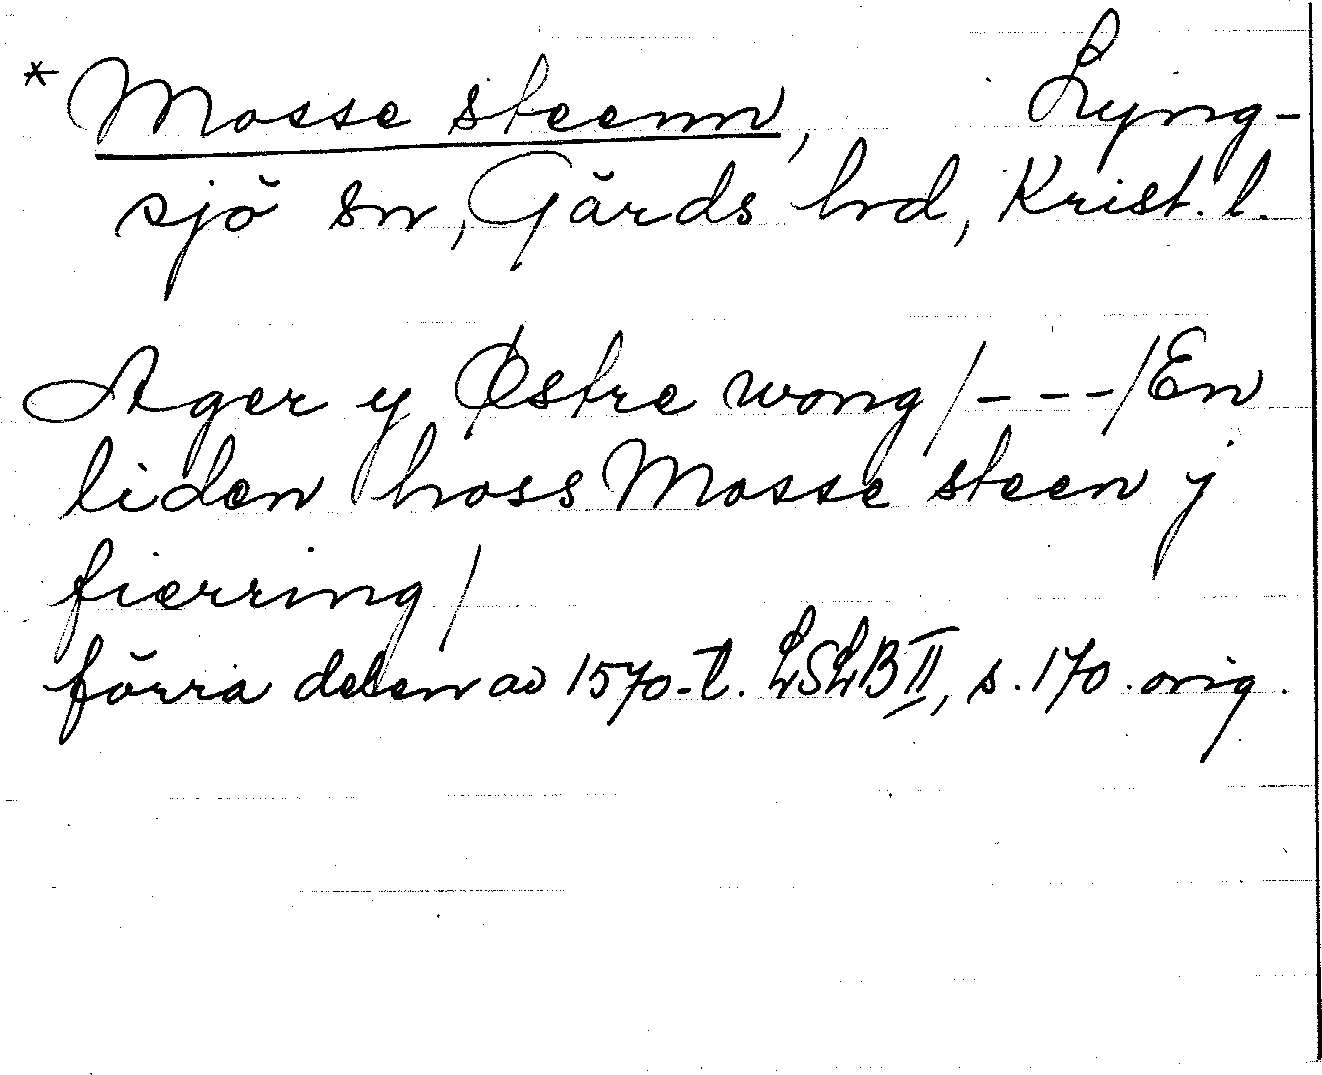 *Mosse steenn, Lyng-
sjö sn, Gärds hrd, Krist. l.
Ager y Østre wong /---/ En
liden hoss Mosse steen y
fierring /
förra delen av 1570-t. LSLB II, s. 170. orig.